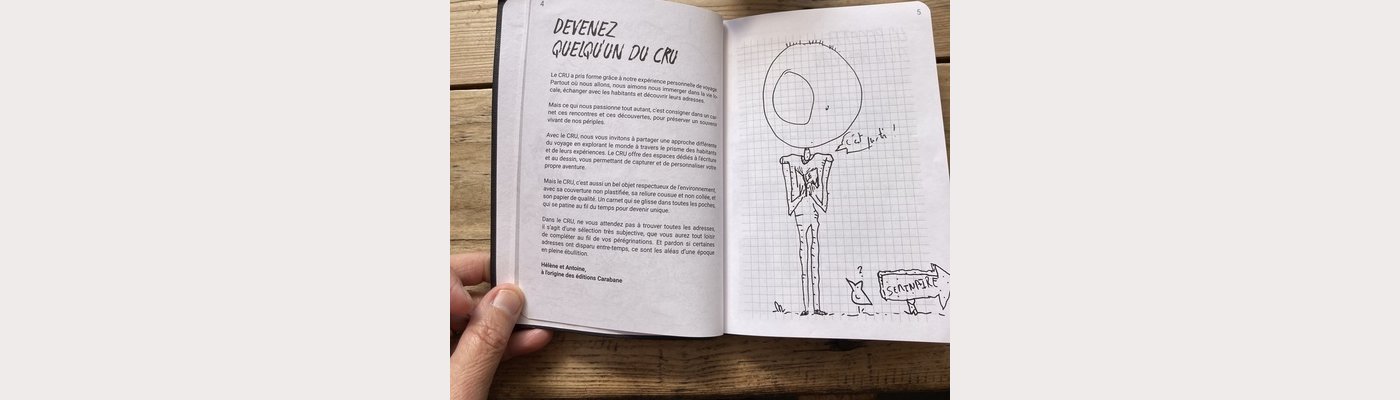 4
DEVENEZ
QUELQU'UN DU CRU
Le CRU a pris forme grâce à notre expérience personnelle de voyage.
Partout où nous allons, nous aimons nous immerger dans la vie lo-
cale, échanger avec les habitants et découvrir leurs adresses.
Mais ce qui nous passionne tout autant, c'est consigner dans un car-
net ces rencontres et ces découvertes, pour préserver un souvenir
vivant de nos périples.
Avec le CRU, nous vous invitons à partager une approche différente
du voyage en explorant le monde à travers le prisme des habitants
et de leurs expériences. Le CRU offre des espaces dédiés à l'écriture
et au dessin, vous permettant de capturer et de personnaliser votre
propre aventure.
Mais le CRU, c'est aussi un bel objet respectueux de l'environnement,
avec sa couverture non plastifiée, sa reliure cousue et non collée, et
son papier de qualité. Un carnet qui se glisse dans toutes les poches,
qui se patine au fil du temps pour devenir unique.
Dans le CRU, ne vous attendez pas à trouver toutes les adresses,
il s'agit d'une sélection très subjective, que vous aurez tout loisir
de compléter au fil de vos pérégrinations. Et pardon si certaines
adresses ont disparu entre-temps, ce sont les aléas d'une époque
en pleine ébullition.
Hélène et Antoine,
à l'origine des éditions Carabane
5
c'est parti !
?
SEMINAIRE